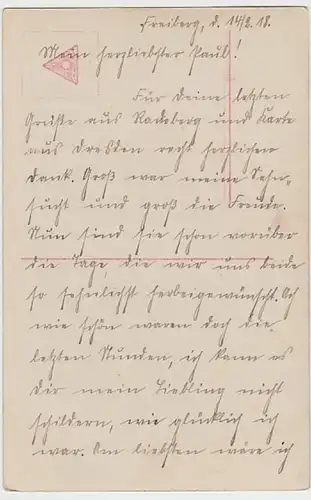 Freiberg, d. 14/2. 18.
Mein herzliebster Paul!
Für deine letzten
Grüße aus Radeberg und Karte
aus Dresden recht herzlichen
Dank. Groß war meine Sehn-
sucht und groß die Freude.
Nun sind sie schon vorüber
die Tage, die wir uns beide
so sehnlichst herbeigewünscht. Ach
wie schön waren doch die
letzten Stunden, ich kann es
Dir mein Liebling nicht
schildern, wie glücklich ich
war. Am liebsten wäre ich